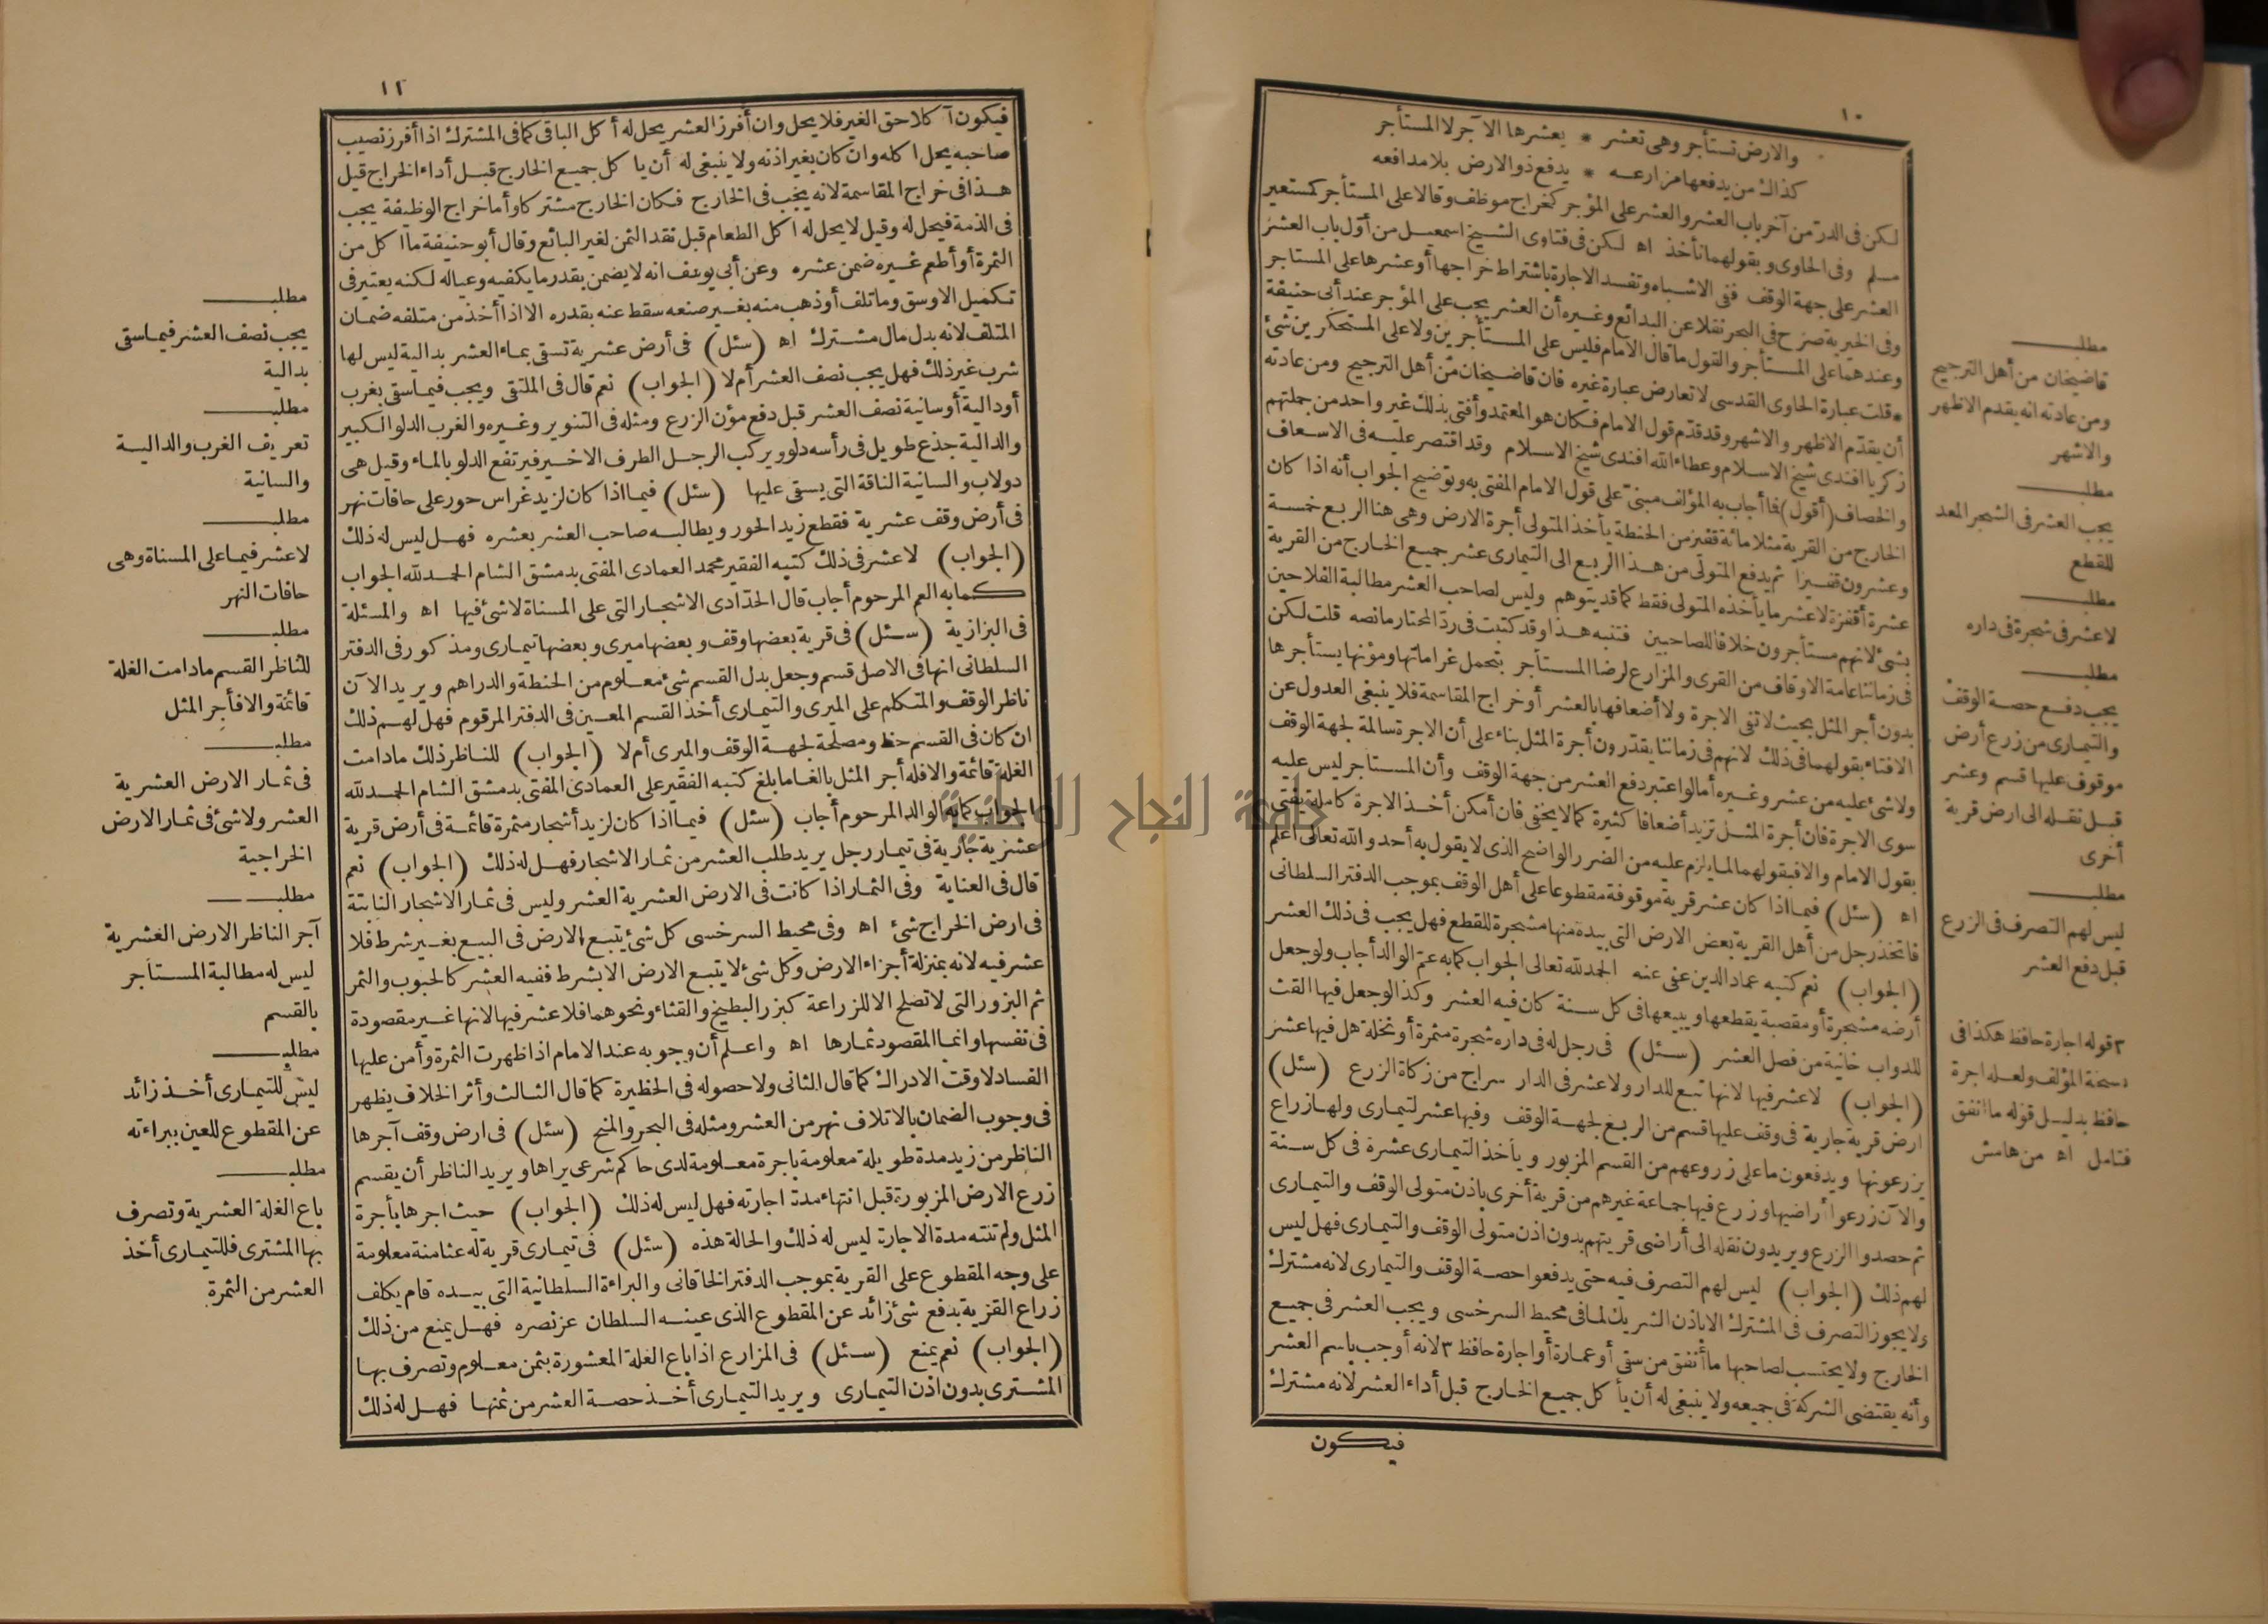 ١٠
والارض تستأجر وهى تعشر * يعشرها الآجر لا المستأجر
كذاك من يدفعها مزارعه * يدفع ذو الارض بلا مدافعه
لكن فى الدر من آخر باب العشر والعشر على المؤجر كخراج موظف وقالا على المستأجر كمستعير
مسلم وفى الحاوى وبقولهما نأخذ اه لكن فى فتاوى الشيخ اسمعيل من أول باب العشر
العشر على جهة الوقف ففى الاشباه وتفسد الاجارة باشتراط خراجها أو عشرها على المستاجر
وفى الخيرية صرح فى البحر نقلا عن البدائع وغيره أن العشر يجب على المؤجر عند أبى حنيفة
وعندهما على المستأجر والقول ما قال الامام فليس على المستأجرين ولا على المستحكرين شئ
* قلت عبارة الحاوى القدسى لا تعارض عبارة غيره فان قاضيخان من أهل الترجيح ومن عادته
أن يقدم الاظهر والاشهر وقد قدم قول الامام فكان هو المعتمد وأفتى بذلك غير واحد من جملتهم
زكريا افندى شيخ الاسلام وعطاء الله افندى شيخ الاسلام وقد اقتصر عليه فى الاسعاف
والخصاف (أقول) فما أجاب به المؤلف مبنى على قول الامام المفتى به وتوضيح الجواب أنه اذا كان
الخارج من القرية مثلا مائة قفيز من الحنطة يأخذ المتولى أجرة الارض وهى هنا الربع خمسة
وعشرون قفيزا ثم يدفع المتولى من هذا الربع الى التيمارى عشر جميع الخارج من القرية
عشرة أقفزة لا عشر ما يأخذه المتولى فقط كما قد يتوهم وليس لصاحب العشر مطالبة الفلاحين
بشئ لانهم مستأجرون خلافا للصاحبين فتنبه هذا وقد كتبت فى رد المحتار ما نصه قلت لكن
فى زماننا عامة الاوقاف من القرى والمزارع لرضا المستأجر بتحمل غراماتها ومؤنها يستأجرها
بدون أجر المثل بحيث لا تفى الاجرة ولا أضعافها بالعشر أو خراج المقاسمة فلا ينبغى العدول عن
الافتاء بقولهما فى ذلك لانهم فى زماننا يقدرون أجرة المثل بناء على أن الاجرة سالمة لجهة الوقف
ولا شئ عليه من عشر وغيره أما لو اعتبر دفع العشر من جهة الوقف وأن المستاجر ليس عليه
سوى الاجرة فان أجرة المثل تزيد أضعافا كثيرة كما لا يخفى فان أمكن أخذ الاجرة كاملة يفتى
بقول الامام والا فبقولهما لما يلزم عليه من الضرر الواضح الذى لا يقول به أحد والله تعالى أعلم
اه (سئل) فيما اذا كان عشر قرية موقوفة مقطوعا على أهل الوقف بموجب الدفتر السلطانى
فاتخذ رجل من أهل القرية بعض الارض التى بيده منها مشجرة للقطع فهل يجب فى ذلك العشر
(الجواب) نعم كتبه عماد الدين عفى عنه الحمد لله تعالى الجواب كما به عم الوالد أجاب ولو جعل
أرضه مشجرة أو مقصبة يقطعها ويبيعها فى كل سنة كان فيه العشر وكذا لو جعل فيها القت
للدواب خانية من فصل العشر (سئل) فى رجل له فى داره شجرة مثمرة أو نخلة هل فيها عشر
(الجواب) لا عشر فيها لانها تبع للدار ولا عشر فى الدار سراج من زكاة الزرع (سئل)
ارض قرية جارية فى وقف عليها قسم من الربع لجهة الوقف وفيها عشر لتيمارى ولها زراع
يزرعونها ويدفعون ما على زروعهم من القسم المزبور ويأخذ التيمارى عشرة فى كل سنة
والآن زرعوا أراضيها وزرع فيها جماعة غيرهم من قرية أخرى باذن متولى الوقف والتيمارى
ثم حصدوا الزرع ويريدون نقله الى أراضى قريتهم بدون اذن متولى الوقف والتيمارى فهل ليس
لهم ذلك (الجواب) ليس لهم التصرف فيه حتى يدفعوا حصة الوقف والتيمارى لانه مشترك
ولا يجوز التصرف فى المشترك الا باذن الشريك لما فى محيط السرخسى ويجب العشر فى جميع
الخارج ولا يحتسب لصاحبها ما أنفق من سقى أو عمارة أو اجارة حافظ ٣ لانه أوجب باسم العشر
وأنه يقتضى الشركة فى جميعه ولا ينبغى له أن يأكل جميع الخارج قبل أداء العشر لانه مشترك
فيكون
مطلب
قاضيخان من أهل الترجيح
ومن عادته انه يقدم الاظهر
والاشهر
مطلب
يجب العشر فى الشجر المعد
للقطع
مطلب
لا عشر فى شجرة فى داره
مطلب
يجب دفع حصة الوقف
والتيمارى من زرع أرض
موقوف عليها قسم وعشر
قبل نقله الى ارض قرية
أخرى
مطلب
ليس لهم التصرف فى الزرع
قبل دفع العشر
٣ قوله اجارة حافظ هكذا فى
نسخة المؤلف ولعله اجرة
حافظ بدليل قوله ما انفق
فتامل اه من هامش
١٢
فيكون آكلا حق الغير فلا يحل وان أفرز العشر يحل له أكل الباقى كما فى المشترك اذا أفرز نصيب
صاحبه يحل اكله وان كان بغير اذنه ولا ينبغى له أن يأكل جميع الخارج قبل أداء الخراج قيل
هذا فى خراج المقاسمة لانه يجب فى الخارج فكان الخارج مشتركا وأما خراج الوظيفة يجب
فى الذمة فيحل له وقيل لا يحل له اكل الطعام قبل نقد الثمن لغير البائع وقال أبو حنيفة ما اكل من
الثمرة أو أطعم غيره ضمن عشره وعن أبى يوسف انه لا يضمن بقدر ما يكفيه وعياله لكنه يعتبر فى
تكميل الاوسق وما تلف أو ذهب منه بغير صنعه سقط عنه بقدره الا اذا أخذ من متلفه ضمان
المتلف لانه بدل مال مشترك اه (سئل) فى أرض عشرية تسقى بماء العشر بدالية ليس لها
شرب غير ذلك فهل يجب نصف العشر أم لا (الجواب) نعم قال فى الملتقى ويجب فيما سقى بغرب
أو دالية أو سانية نصف العشر قبل دفع مؤن الزرع ومثله فى التنوير وغيره والغرب الدلو الكبير
والدالية جذع طويل فى رأسه دلو ويركب الرجل الطرف الاخير فيرتفع الدلو بالماء وقيل هى
دولاب والسانية الناقة التى يسقى عليها (سئل) فيما اذا كان لزيد غراس حور على حافات نهر
فى أرض وقف عشرية فقطع زيد الحور ويطالبه صاحب العشر بعشره فهل ليس له ذلك
(الجواب) لا عشر فى ذلك كتبه الفقير محمد العمادى المفتى بدمشق الشام الحمد لله الجواب
كما به العم المرحوم أجاب قال الحدادى الاشجار التى على المسناة لا شئ فيها اه والمسئلة
فى البزازية (سئل) فى قرية بعضها وقف وبعضها ميرى وبعضها تيمارى ومذكور فى الدفتر
السلطانى انها فى الاصل قسم وجعل بدل القسم شئ معلوم من الحنطة والدراهم ويريد الآن
ناظر الوقف والمتكلم على الميرى والتيمارى أخذ القسم المعين فى الدفتر المرقوم فهل لهم ذلك
ان كان فى القسم حظ ومصلحة لجهة الوقف والميرى أم لا (الجواب) للناظر ذلك ما دامت
الغلة قائمة والا فله أجر المثل بالغا ما بلغ كتبه الفقير على العمادى المفتى بدمشق الشام الحمد لله
الجواب كما به الوالد المرحوم أجاب (سئل) فيما اذا كان لزيد أشجار مثمرة قائمة فى أرض قرية
عشرية جارية فى تيمار رجل يريد طلب العشر من ثمار الاشجار فهل له ذلك (الجواب) نعم
قال فى العناية وفى الثمار اذا كانت فى الارض العشرية العشر وليس فى ثمار الاشجار النابتة
فى ارض الخراج شئ اه وفى محيط السرخسى كل شئ يتبع الارض فى البيع بغير شرط فلا
عشر فيه لانه بمنزلة أجزاء الارض وكل شئ لا يتبع الارض الا بشرط ففيه العشر كالحبوب والثمر
ثم البزور التى لا تصلح الا للزراعة كبزر البطيخ والقثاء ونحوهما فلا عشر فيها لانها غير مقصودة
فى نفسها وانما المقصود ثمارها اه واعلم أن وجوبه عند الامام اذا ظهرت الثمرة وأمن عليها
الفساد لا وقت الادراك كما قال الثانى ولا حصوله فى الحظيرة كما قال الثالث وأثر الخلاف يظهر
فى وجوب الضمان بالاتلاف نهر من العشر ومثله فى البحر والمنح (سئل) فى ارض وقف آجرها
الناظر من زيد مدة طويلة معلومة باجرة معلومة لدى حاكم شرعى يراها ويريد الناظر أن يقسم
زرع الارض المزبورة قبل انتهاء مدة اجارته فهل ليس له ذلك (الجواب) حيث اجرها بأجرة
المثل ولم تنته مدة الاجارة ليس له ذلك والحالة هذه (سئل) فى تيمارى قرية له عثامنة معلومة
على وجه المقطوع على القرية بموجب الدفتر الخاقانى والبراءة السلطانية التى بيده قام يكلف
زراع القرية بدفع شئ زائد عن المقطوع الذى عينه السلطان عز نصره فهل يمنع من ذلك
(الجواب) نعم يمنع (سئل) فى المزارع اذا باع الغلة المعشورة بثمن معلوم وتصرف بها
المشترى بدون اذن التيمارى ويريد التيمارى أخذ حصة العشر من ثمنها فهل له ذلك
مطلب
يجب نصف العشر فيما سقى
بدالية
مطلب
تعريف الغرب والدالية
والسانية
مطلب
لا عشر فيما على المسناة وهى
حافات النهر
مطلب
للناظر القسم ما دامت الغلة
قائمة والا فأجر المثل
مطلب
فى ثمار الارض العشرية
العشر ولا شئ فى ثمار الارض
الخراجية
مطلب
آجر الناظر الارض العشرية
ليس له مطالبة المستأجر
بالقسم
مطلب
ليس للتيمارى أخذ زائد
عن المقطوع للعين ببراءته
مطلب
باع الغلة العشرية وتصرف
بها المشترى فللتيمارى أخذ
العشر من الثمرة
جامعة النجاح الوطنية